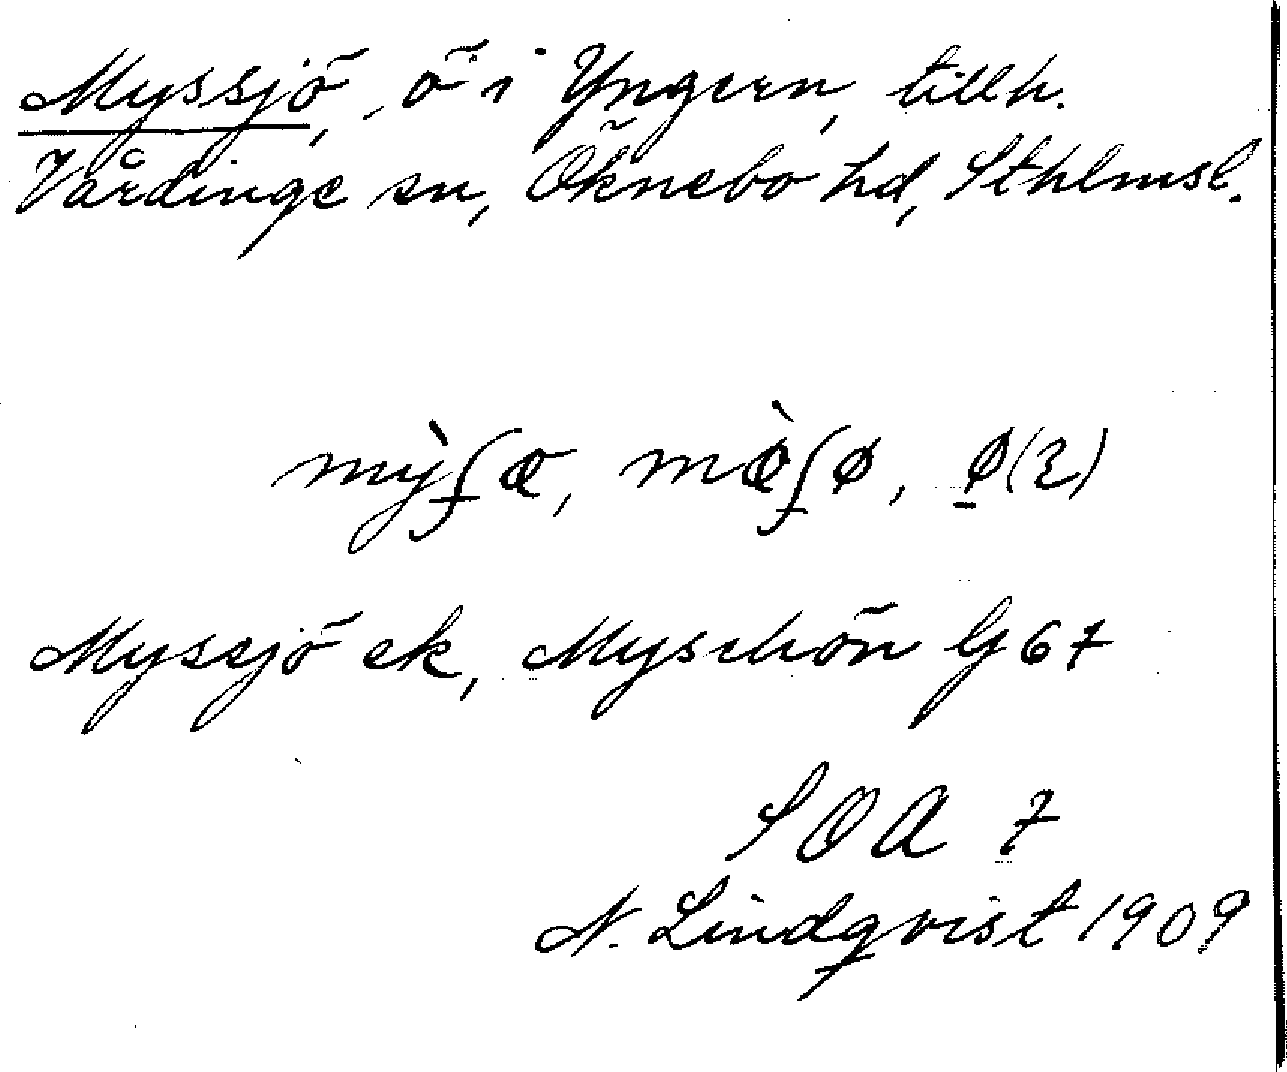 Myssjö, ö i Yngern, tillh.
Vårdinge sn, Öknebo hd, Sthlmsl.
mỳʃœ, mø̀ʃø, ø(2)
Myssjö ek, Myschön G 67
SOA 7
N. Lindqvist 1909